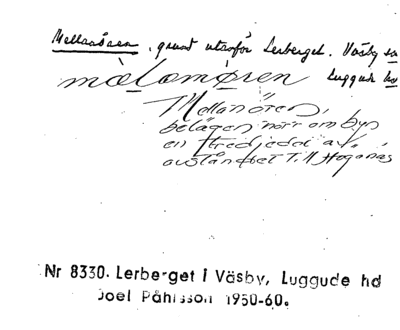 Mellanören, grund utanför Lerberget. Väsby sn
Luggude hd
Mellanören,
belägen norr om byn
en tredjedel av
avståndet till Höganäs
Nr 8330. Lerberget i Väsby, Luggude hd
Joel Påhlsson 1950-60.